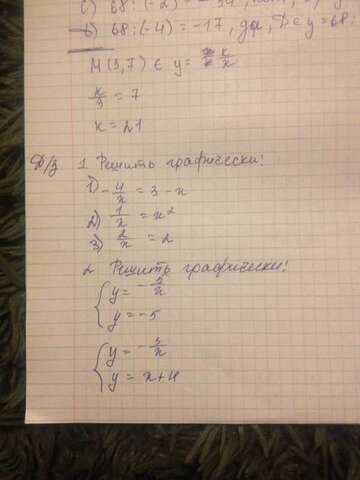 c) 68:(-2) = -34,
b) 68:(-4) = -17, да, D ∈ y = 68:
M(3,7) ∈ y = k/x
k/3 = 7
k = 21
Д/З 1 Решить графически!
1) -4/x = 3 - x
2) 1/x = x²
3) 2/x = 2
2. Решить графически!
{ y = -5/x
y = -5
{ y = -3/x
y = x+4